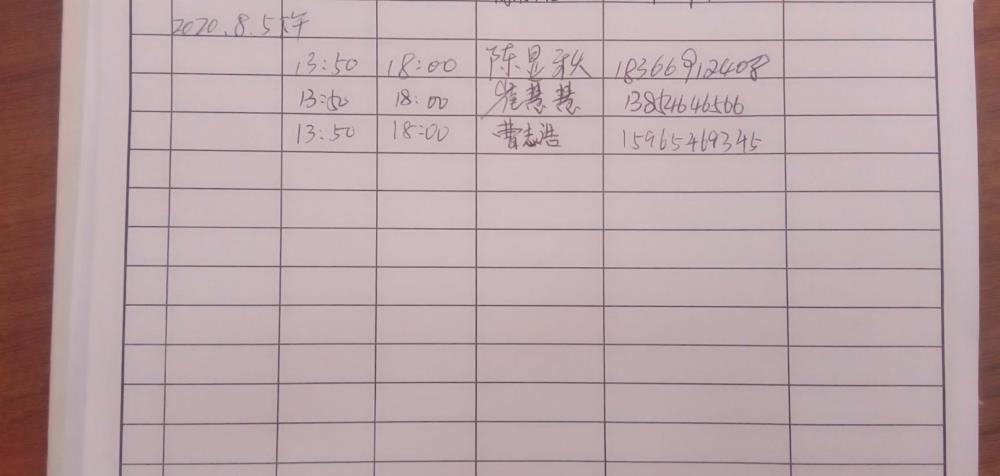 2020.8.5下午
13:50 18:00 陈显秩 18366912408
13:50 18:00 崔慧慧 13854646566
13:50 18:00 曹志浩 15965469345